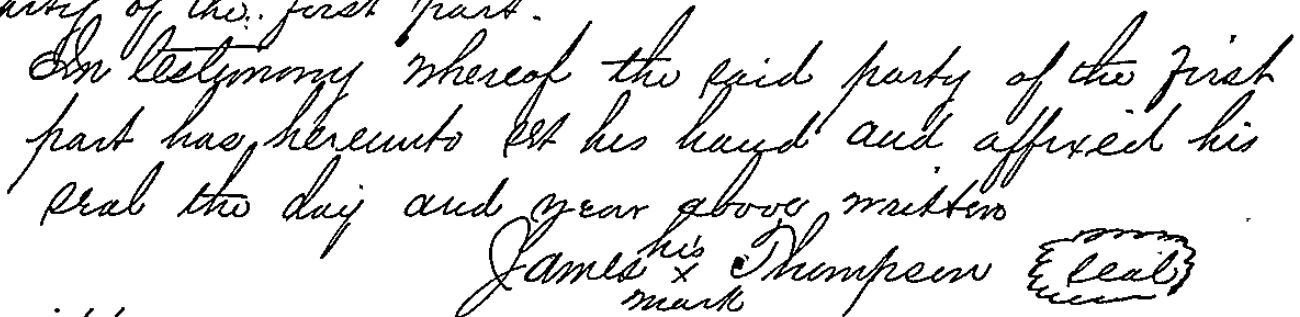 party of the first part.
In testimony whereof the said party of the first
part has hereunto set his hand and affixed his
seal the day and year above written
his
James x Thompson seal
mark